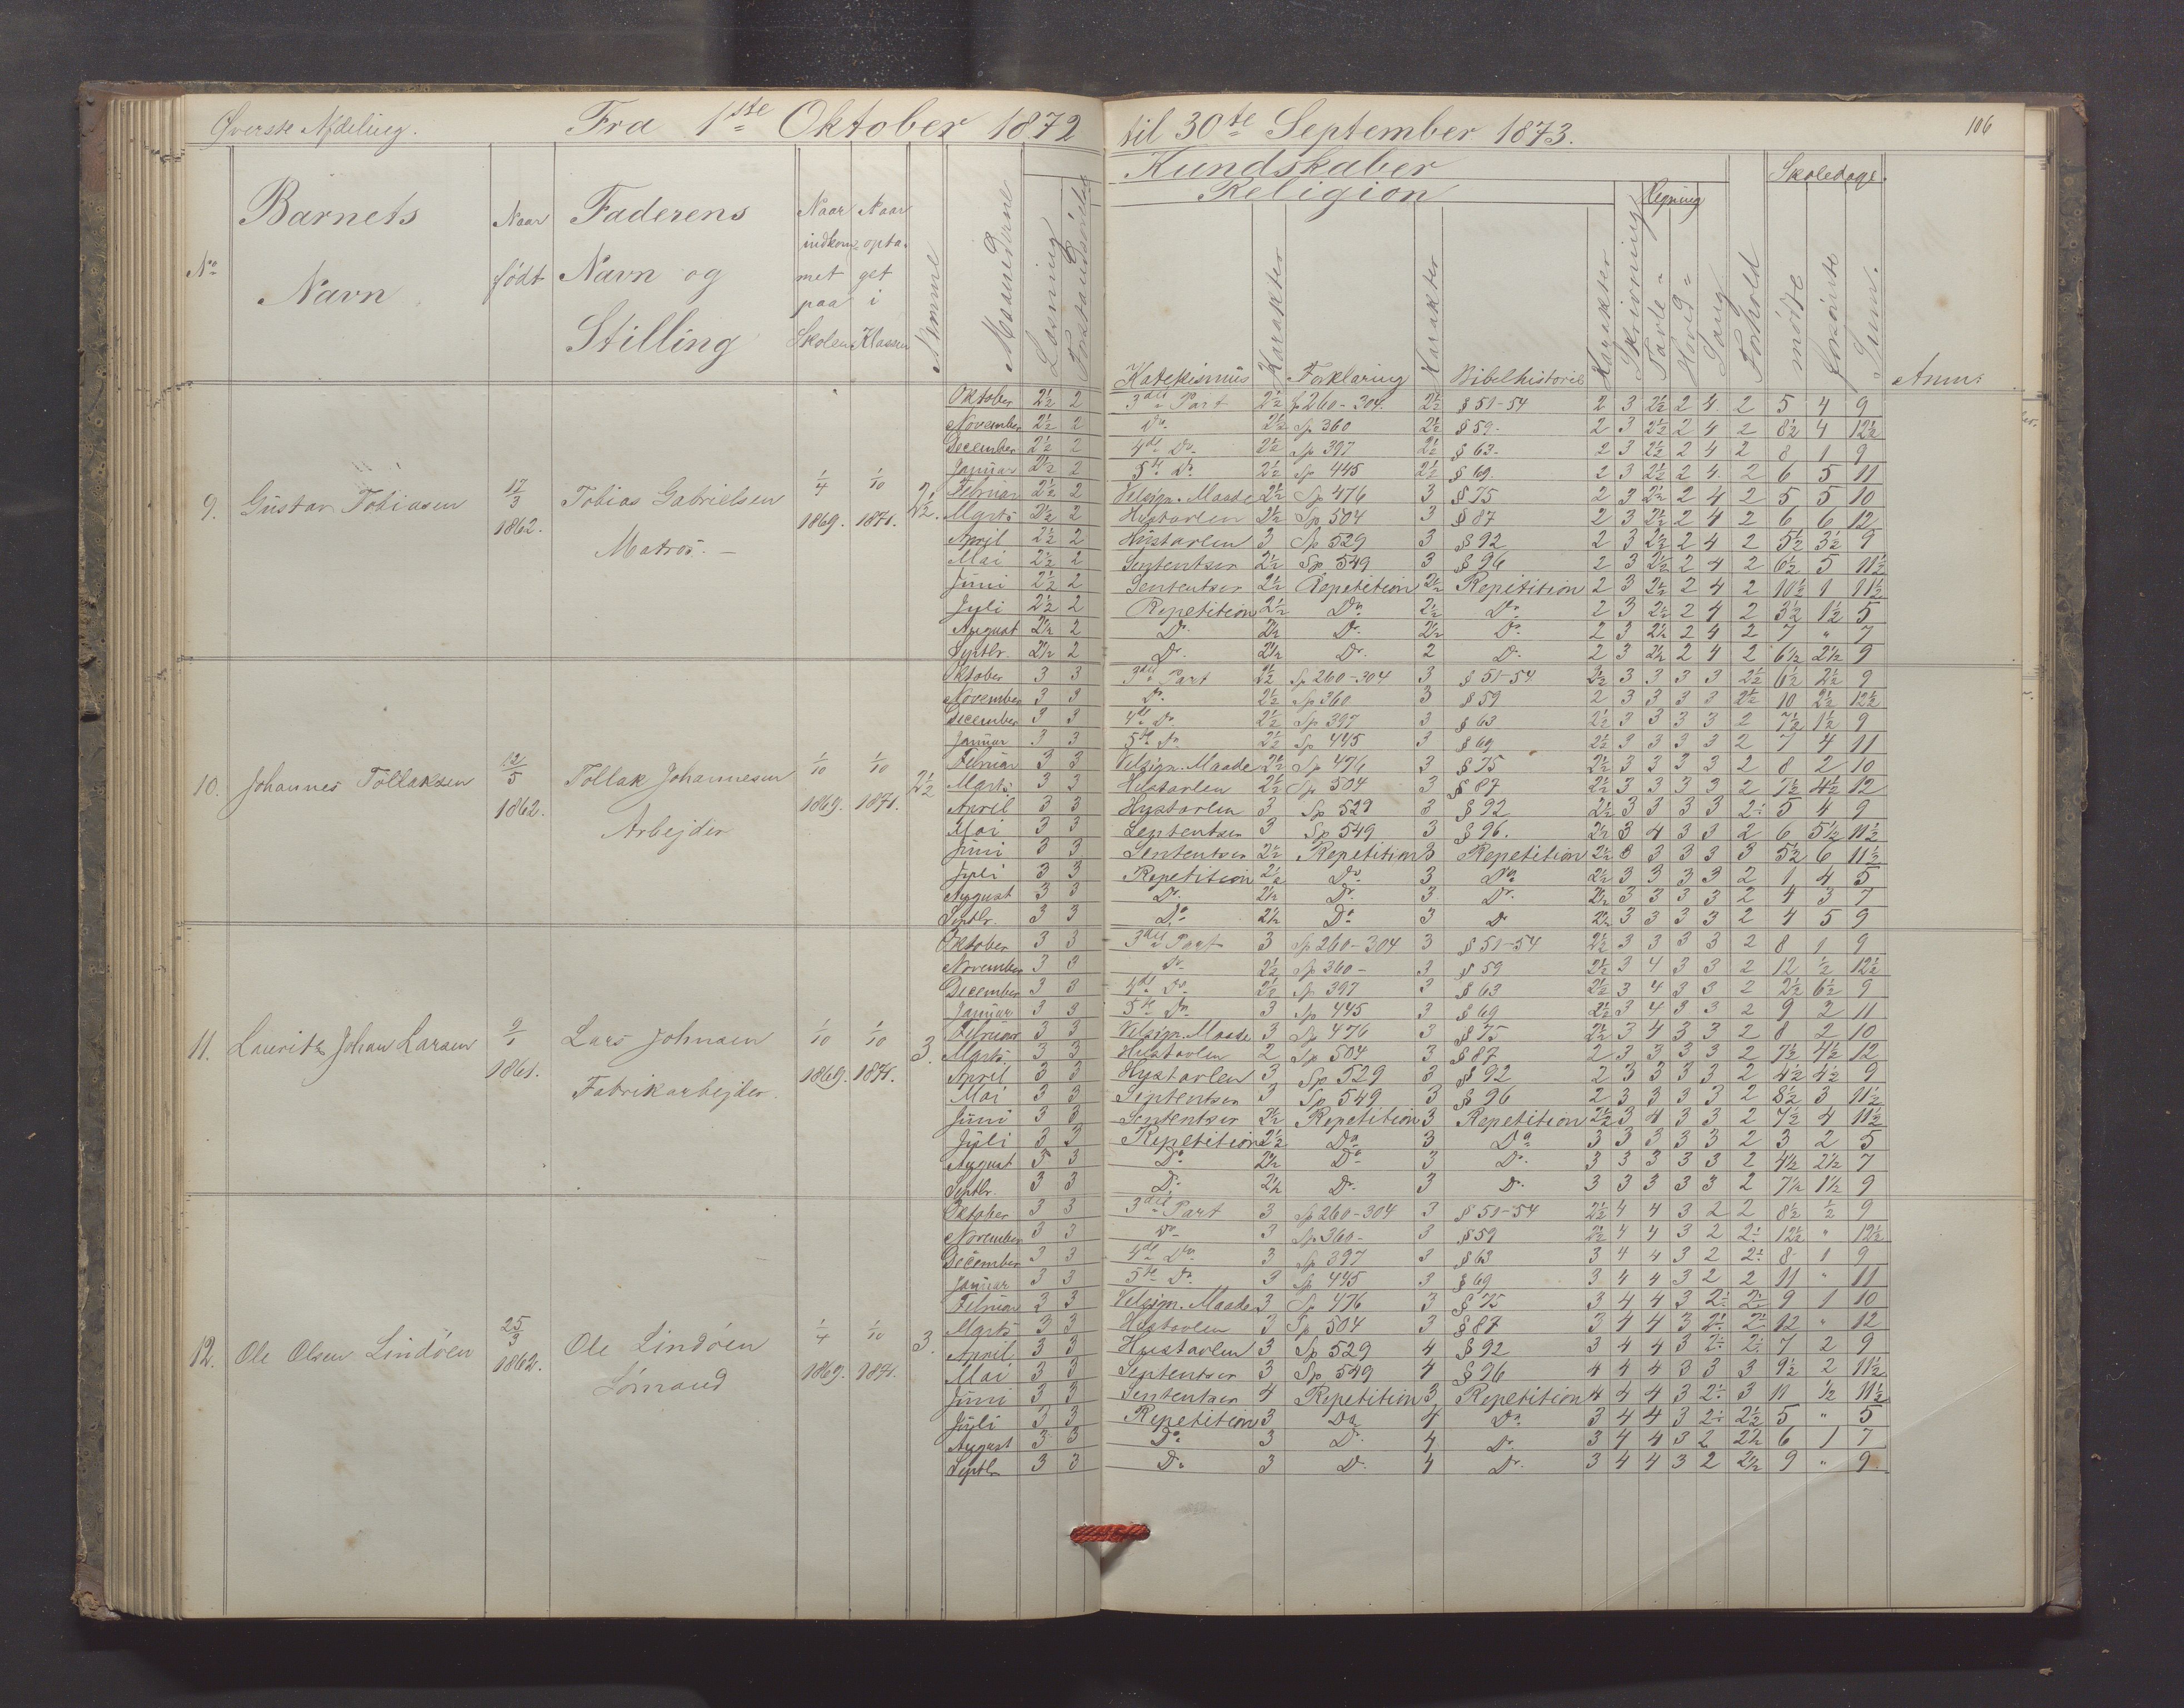 Øverste Afdeling. Fra 1ste Oktober 1872 til 30te September 1873. 106
Kundskaber
Religion Regning Skoledage.
No Barnets Navn Naar født Faderens Navn og Stilling Naar indkommet paa Skolen Naar optaget i Klassen Maanederne Læsning Katekismus Karakter Forklaring Karakter Bibelhistorie Karakter Skrivning Tavle- Hoved- Sang Forhold mødte forsømte Sum. Anm:
9. Gustav Tobiasen 17/3 1862. Tobias Gabrielsen Matros. 1/4 1869. 1/10 1871. 2½.
Oktober 2½ 2 3die Part 2½ Sp 260-304. 2½ § 51-54 2 3 2½ 2 4 2 5 4 9
November 2½ 2 Do 2½ Sp 360 2½ § 59. 2 3 2½ 2 4 2 8½ 4 12½
December 2½ 2 4de Do 2½ Sp 397 2½ § 63. 2 3 2½ 2 4 2 8 1 9
Januar 2½ 2 5te Do 2½ Sp 445 2½ § 69. 2 3 2½ 2 4 2 6 5 11
Februar 2½ 2 Velsign. Maade 2½ Sp 476 3 § 75 2 3 2½ 2 4 2 5 5 10
Marts 2½ 2 Hustavlen 2½ Sp 504 3 § 87 2 3 2½ 2 4 2 6 6 12
April 2½ 2 Hustavlen 3 Sp 529 3 § 92 2 3 2½ 2 4 2 5½ 3½ 9
Mai 2½ 2 Sententser 2½ Sp 549 3 § 96 2 3 2½ 2 4 2 6½ 5 11½
Juni 2½ 2 Sententser 2½ Repetition 2½ Repitition 2 3 2½ 2 4 2 10½ 1 11½
Juli 2½ 2 Repetition 2½ Do 2½ Do 2 3 2½ 2 4 2 3½ 1½ 5
August 2½ 2 Do 2½ Do 2½ Do 2 3 2½ 2 4 2 7 " 7
Septbr. 2½ 2 Do 2½ Do 2 Do 2 3 2½ 2 4 2 6½ 2½ 9
10. Johannes Tollaksen 12/5 1862. Tollak Johannesen Arbejder 1/10 1869. 1/10 1871. 2½
Oktober 3 3 3die Part 2½ Sp 260-304 3 § 51-54 2½ 3 3 3 3 2½ 6½ 2½ 9
November 3 3 Do 2½ Sp 360 3 § 59 2 3 3 3 3 2½ 10 2½ 12½
December 3 3 4de Do 2½ Sp 397 3 § 63 2½ 3 3 3 3 2 7½ 1½ 9
Januar 3 3 5te Do 2½ Sp 445 3 § 69 2½ 3 3 3 3 2 7 4 11
Februar 3 3 Velsign. Maade 2½ Sp 476 3 § 75 2½ 3 3 3 3 2 8 2 10
Marts 3 3 Hustavlen 2½ Sp 504 3 § 87 2½ 3 3 3 3 2 7½ 4½ 12
April 3 3 Hustavlen 3 Sp 529 3 § 92 2½ 3 3 3 3 2÷ 5 4 9
Mai 3 3 Sententser 3 Sp 549 3 § 96. 2½ 3 4 3 3 2 6 5½ 11½
Juni 3 3 Sententser 2½ Repetition 3 Repetition 2½ 3 3 3 3 3 5½ 6 11½
Juli 3 3 Repetition 2½ Do 3 Do 2½ 3 3 3 3 2 1 4 5
August 3 3 Do 2½ Do 3 Do 2½ 3 3 3 3 2 4 3 7
Septbr. 3 3 Do 2½ Do 3 Do 2½ 3 3 3 3 2 4 5 9
11. Lauritz Johan Larsen 9/1 1861. Lars Johnsen Fabrikarbejder. 1/10 1869. 1/10 1871. 3.
Oktober 3 3 3die Part 3 Sp 260-304 3 § 51-54 2½ 3 3 3 3 2 8 1 9
November 3 3 Do 2½ Sp 360- 3 § 59 2½ 3 4 3 3 2 12 ½ 12½
December 3 3 4de Do 2½ Sp 397 3 § 63 2½ 3 4 3 3 2 2½ 6½ 9
Januar 3 3 5te Do 3 Sp 445 3 § 69 2½ 3 4 3 3 2 9 2 11
Februar 3 3 Velsign. Maade 3 Sp 476 3 § 75 2½ 3 4 3 3 2 8 2 10
Marts 3 3 Hustavlen 2 Sp 504 3 § 87 2 3 3 3 3 2 7½ 4½ 12
April 3 3 Hustavlen 3 Sp 529 3 § 92 2 3 3 3 3 2 4½ 4½ 9
Mai 3 3 Sententser 3 Sp 549 3 § 96 2 3 3 3 3 2 8½ 3 11½
Juni 3 3 Sententser 2½ Repetition 3 Repetition 2½ 3 4 3 3 2 7½ 4 11½
Juli 3 3 Repetition 2½ Do 3 Do 3 3 3 3 3 2 3 2 5
August 3 3 Do 2½ Do 3 Do 3 3 3 3 3 2 4½ 2½ 7
Septbr. 3 3 Do 2½ Do 3 Do 3 3 3 3 3 2 7½ 1½ 9
12. Ole Olsen Lindöen 25/3 1862. Ole Lindöen Sömand 1/4 1869. 1/10 1871. 3.
Oktober 3 3 3die Part 3 Sp 260-304 3 § 51-54 2½ 4 4 3 2 2 8½ ½ 9
November 3 3 Do 3 Sp 360- 3 § 59 2½ 4 4 3 2 2÷ 12½ " 12½
December 3 3 4de Do 3 Sp 397 3 § 63 3 4 4 3 2 2÷ 8 1 9
Januar 3 3 5te Do 3 Sp 445 3 § 69 3 4 4 3 2 2 11 " 11
Februar 3 3 Velsign. Maade 3 Sp 476 3 § 75 3 4 4 3 2÷ 2÷ 9 1 10
Marts 3 3 Hustavlen 3 Sp 504 3 § 87 3 4 4 3 2÷ 2÷ 12 " 12
April 3 3 Hustavlen 3 Sp 529 4 § 92 3 4 4 3 2÷ 2÷ 7 2 9
Mai 3 3 Sententser 3 Sp 549 4 § 96 4 4 4 3 3 3 9½ 2 11½
Juni 3 3 Sententser 4 Repetition 3 Repetition 4 4 4 3 2÷ 3 11 ½ 11½
Juli 3 3 Repetition 3 Do 4 Do 3 4 4 3 2÷ 2½ 5 " 5
August 3 3 Do 3 Do 4 Do 3 4 4 3 2 2½ 6 1 7
Septbr 3 3 Do 3 Do 4 Do 3 4 4 3 2 2½ 9 " 9